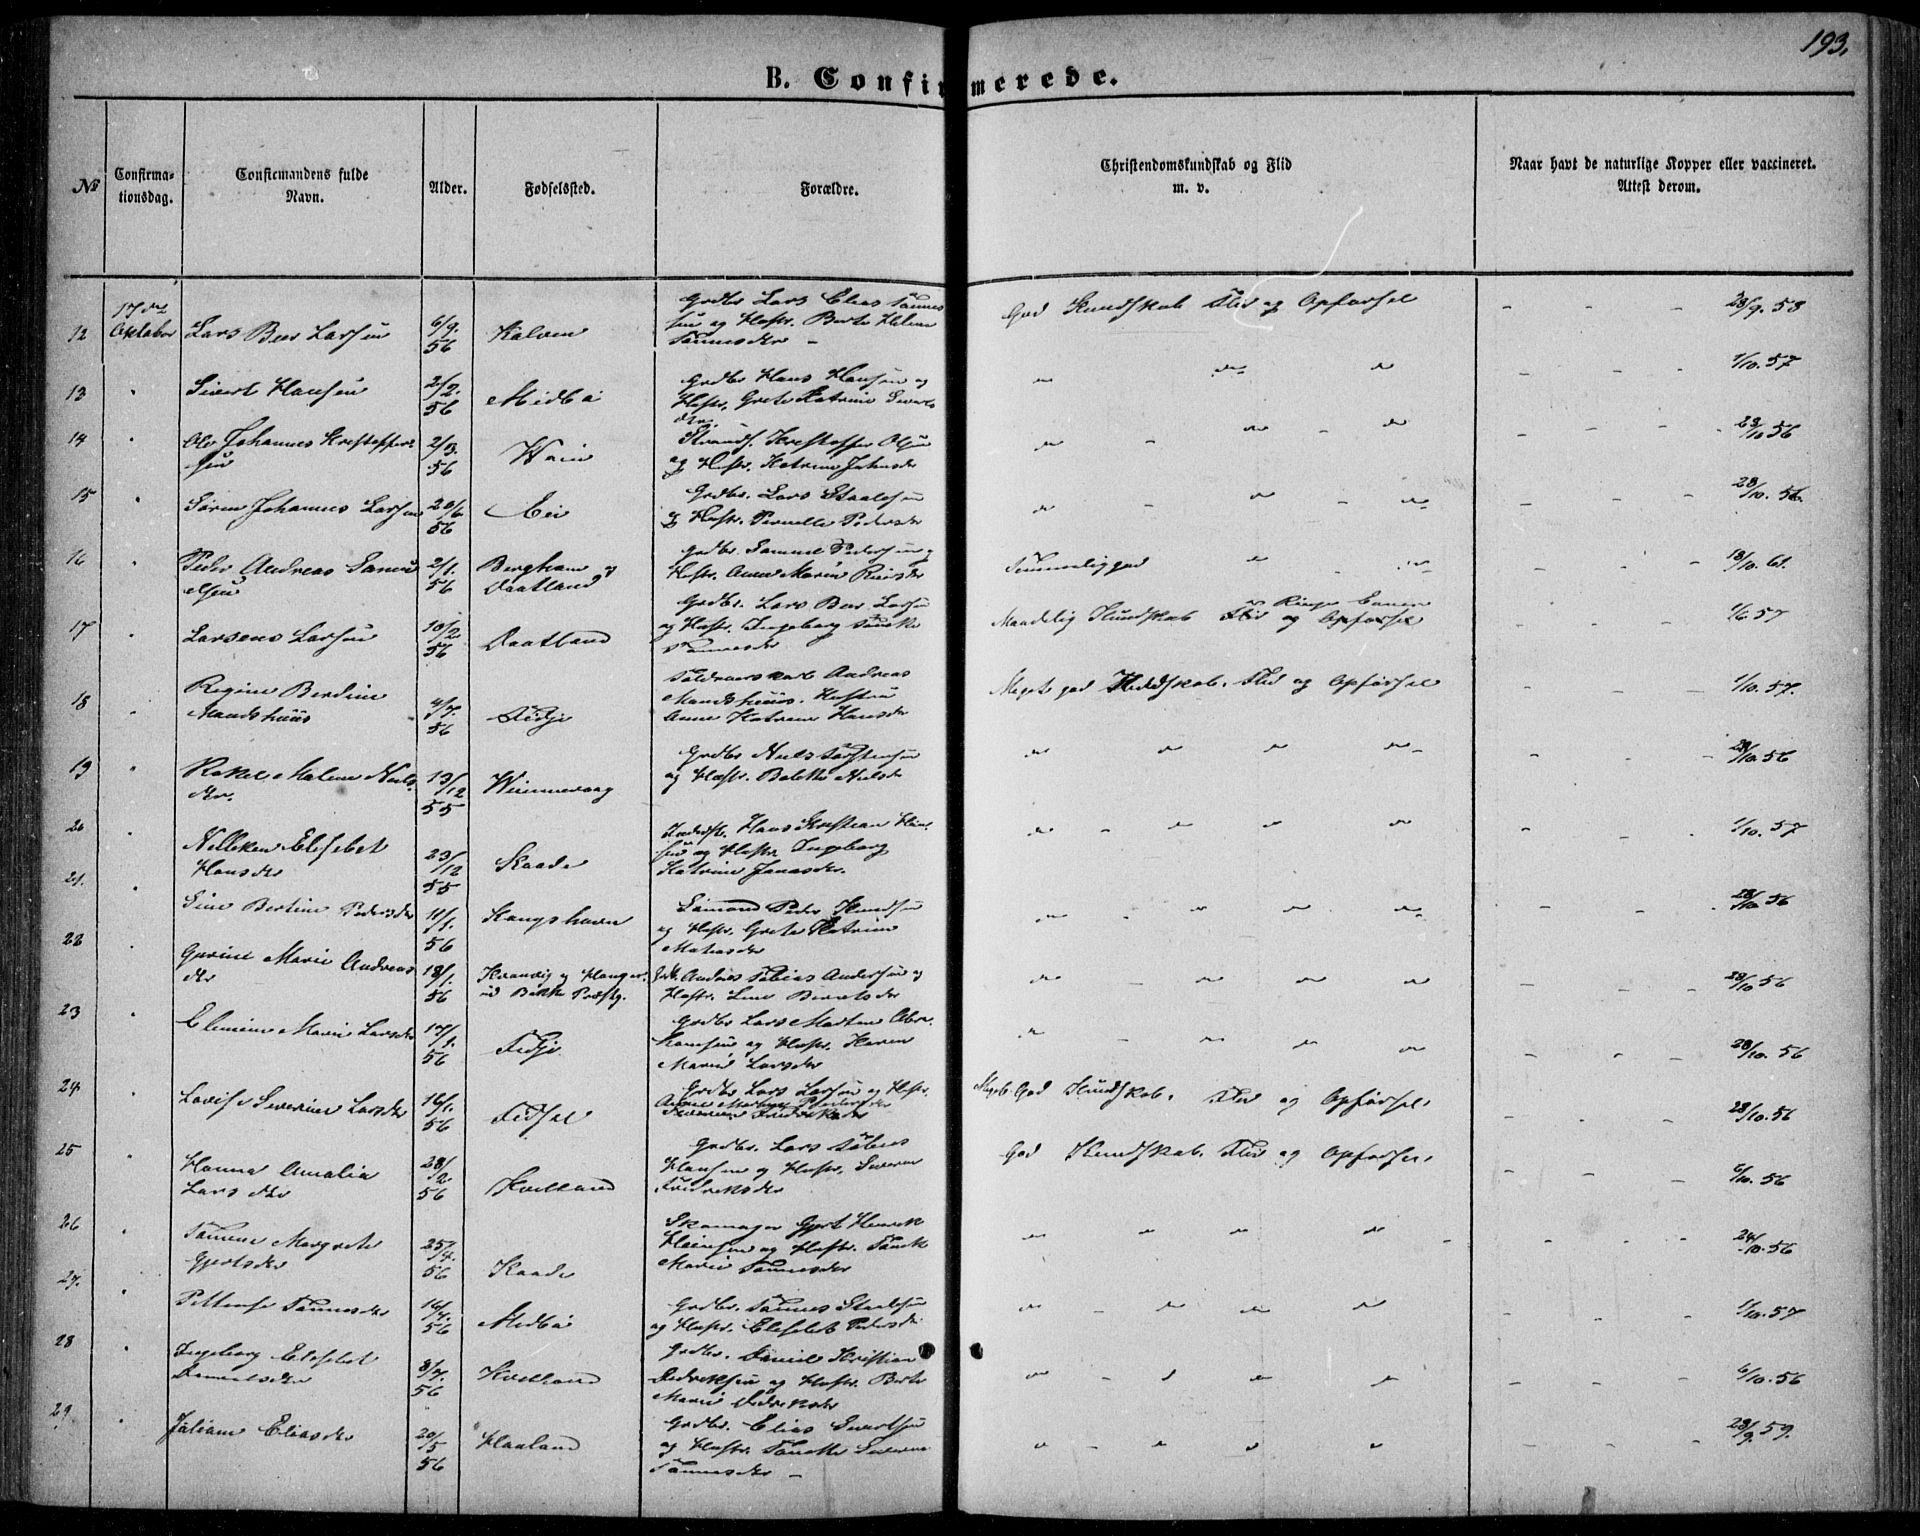 193.
B. Confirmerede.
№
Confirmationsdag.
Confirmandens fulde Navn.
Alder.
Fødselssted.
Forældre.
Christendomskundskab og Flid m. v.
Naar havt de naturlige Kopper eller vaccineret. Attest derom.
12 17de Oktober Lars Beer Larsen 6/9. 56 Kalven Grdbr Lars Elias Tønnessen og Hustr. Berte Helene Tønnesdr — God Kundskab Flid og Opførsel - - - 28/9. 58
13 " Sivert Hansen 2/2. 56 Midbø Grdbr Hans Hansen og Hustr. Grete Katrine Sivertsdtr. " " " - - - 1/10. 57
14 " Ole Johannes Krestoffersen 2/3. 56 Strands. Krestoffer Olsen og Hustr. Katrine Johnsdr " - " - " - - - 23/10 56
15 " Søren Johannes Larsen 20/6 56 Eie Grdbr. Lars Staalesen og Hustr. Pernille Pedersdr " - " - " - - - 28/10. 56.
16 " Peder Andreas Samuelsen 2/1. 56 Bergham og Daatland Grdbr. Samuel Pedersen og Hustr. Anne Marie Temmelig god " - " - - - 13/10. 61.
17 " Larsens Larsen 10/2. 56 Daatland Grdbr. Lars Beer Larsen og Hustr. Ingeborg Tønnesdr Maadelig Kundskab Ringe Evner Flid og Opførsel - - - 1/6. 57
18 " Regine Berdine Mandshuus 4/7. 56 Fidje Andreas Mandshuus. Hustru Anne Katrine Hansdr Meget god Kundskab. Flid og Opførsel - - - 1/10. 57.
19 " Rakel Malene Nielsdtr. 13/12 55 Grdbr Niels Torstensen og Hustr. Bolette Nielsdr " " " " - - - 28/10 56
20 " Nilleken Elesebet Hansdr 23/12 55 Kaade Hans Krestian Hansen og Hustr. Ingeborg Katrine Jonasdr. " - " " " - - - 1/10. 57
21. " Sine Bertine Pedersdr 11/1. 56 Kongshavn Sømand Peder Knudsen og Hustr. Grete Katrine " - " " " - - - 28/10 56
22 " Gurine Marie Andreasdr 18/1. 56 Andreas Tobias Andersen og Hustr. Line " - " " " - - - 28/10 56
23 " Elenine Marie Larsdr 17/1. 56 Fidje Grdbr Lars Morten Abrahamsen og Hustr. Karen Marie Larsdr " - " " " - - - 28/10. 56
24. " Lovise Severine Larsdr 16/1. 56 Fidsel Grdbr Lars Larsen og Hustr. Meget God Kundskab. Flid og Opførsel. - - - 28/10. 56
25 " Hanna Amalia Larsdtr 28/2. 56 Kvelland Grdbr. Lars Tobias Hansen og Hustr. Severine Fredriksdr God Kundskab. Flid og Opførsel. - - - 6/10. 56
26 " Tønnine Margrete Gjertsdr 25/4. 56 Kaade Skomager Gjert Henrik Heinesen og Hustr. Marie Tønnesdr " " " " - - - 24/10. 56
27. " Pettrense Tønnesdr 16/4. 56 Midbø Grdbr. Tønnes Staalesen og Hustr. Elesebet Pedersdr " - " " " - - - 1/10. 57
28 " Ingeborg Elesebet Danielsdr 3/7. 56 Kvelland Grdbr. Daniel Kristian Didriksen og Hustr. Berte Marie " - " " " - - - 6/10. 56
29 " Juliane Eliasdr 20/5 56 Haaland Grdbr. Elias Sivertsen og Hustr. Tønette Severine Tønnesdr — " - " " " - - - 28/9. 59.